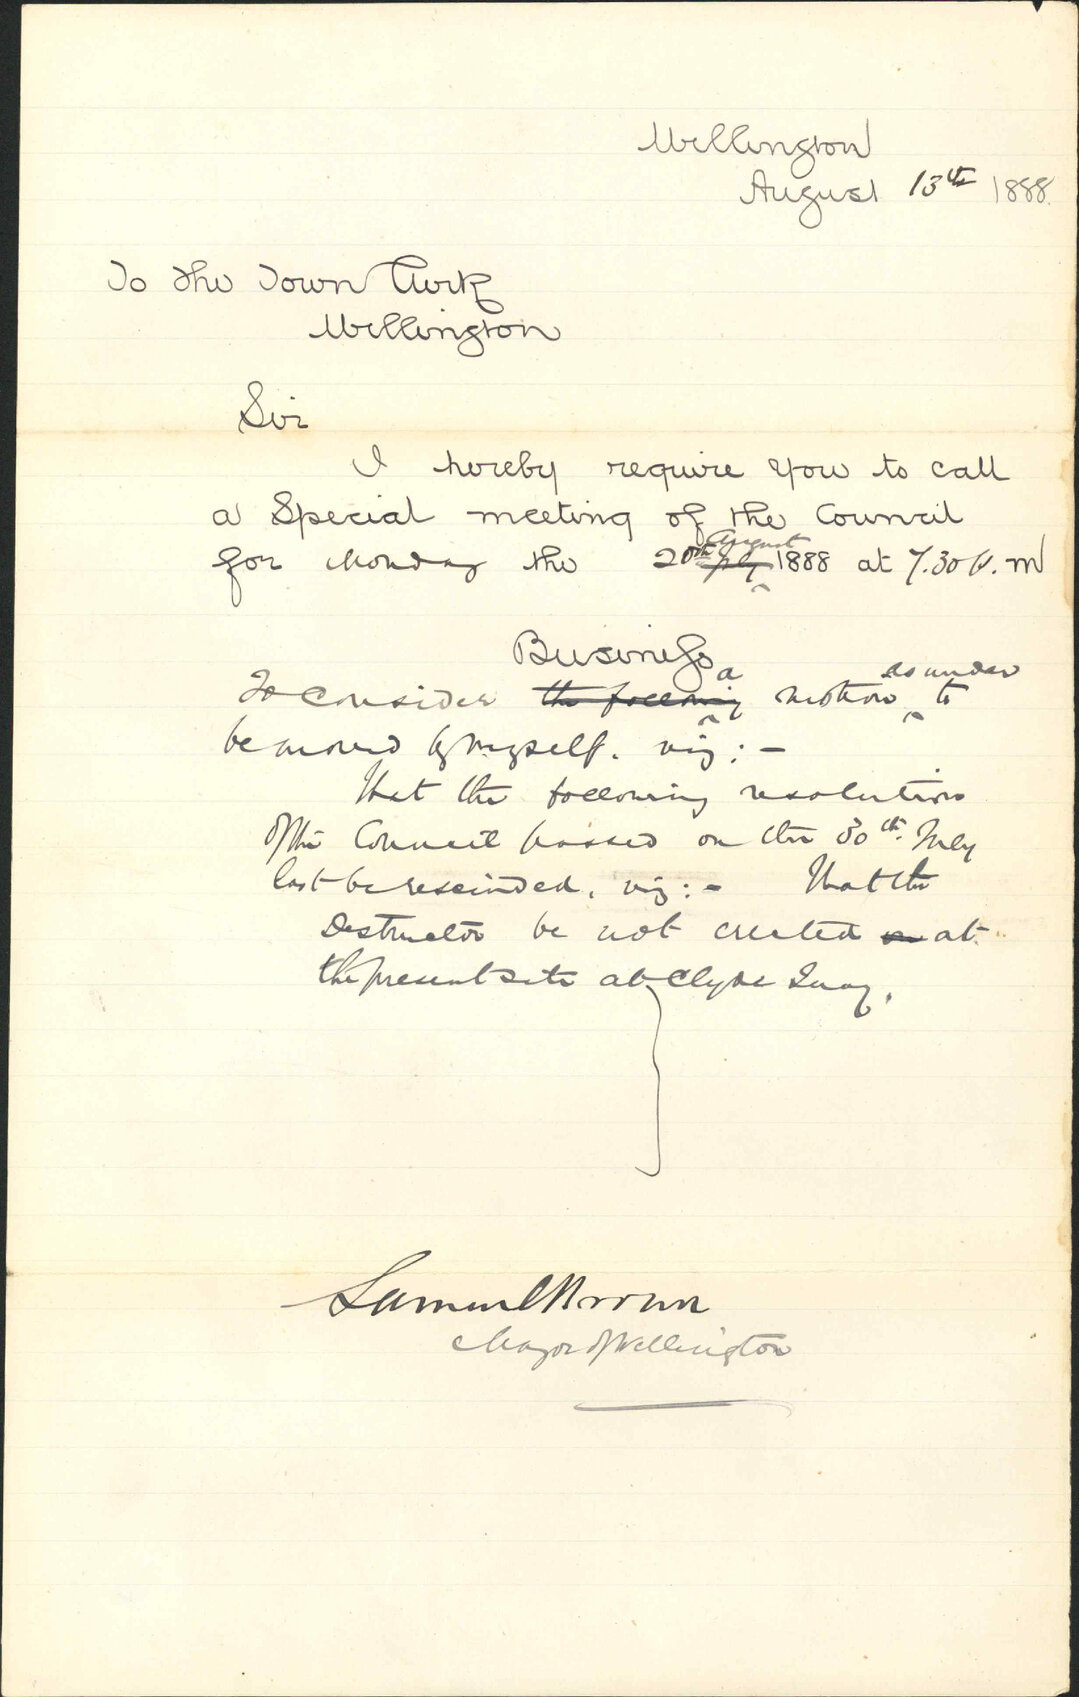 Wellington
August 13th 1888.
To the Town Clerk
Wellington
Sir
I hereby require you to call
a Special meeting of the Council
for Monday the 20th July August 1888 at 7.30 P.m
Business
To consider the following a motion as under to
be moved by myself. viz: -
That the following resolution
of the Council passed on the 30th. July
last be rescinded, viz: - That the
Destructor be not erected on at
the present site at Clyde Quay.
Samuel Brown
Mayor of Wellington